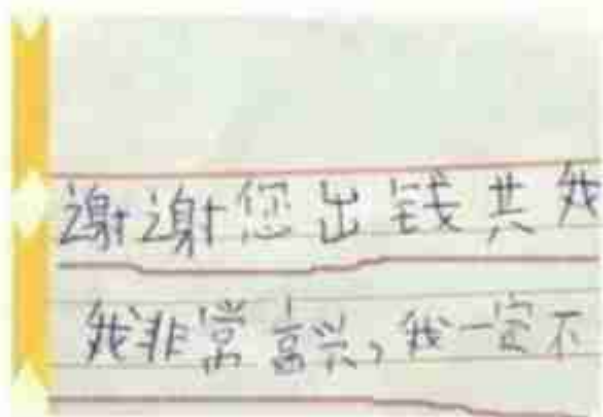 谢谢您出钱共我
我非常高兴，我一定不